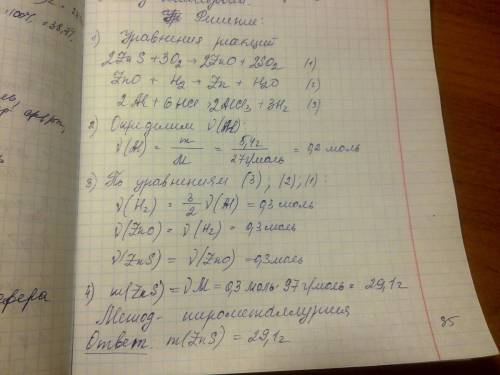 100%
38,7%
Решение:
1) Уравнения реакций
2ZnS + 3O₂ → 2ZnO + 2SO₂ (1)
ZnO + H₂ → Zn + H₂O (2)
2Al + 6HCl → 2AlCl₃ + 3H₂ (3)
2) Определим ν(Al):
ν(Al) = m/M = 5,4г/27г/моль = 0,2 моль
3) По уравнениям (3), (2), (1):
ν(H₂) = 3/2 ν(Al) = 0,3 моль
ν(ZnO) = ν(H₂) = 0,3 моль
ν(ZnS) = ν(ZnO) = 0,3 моль
4) m(ZnS) = νM = 0,3 моль · 97 г/моль = 29,1 г
Метод - пирометаллургия
Ответ. m(ZnS) = 29,1 г